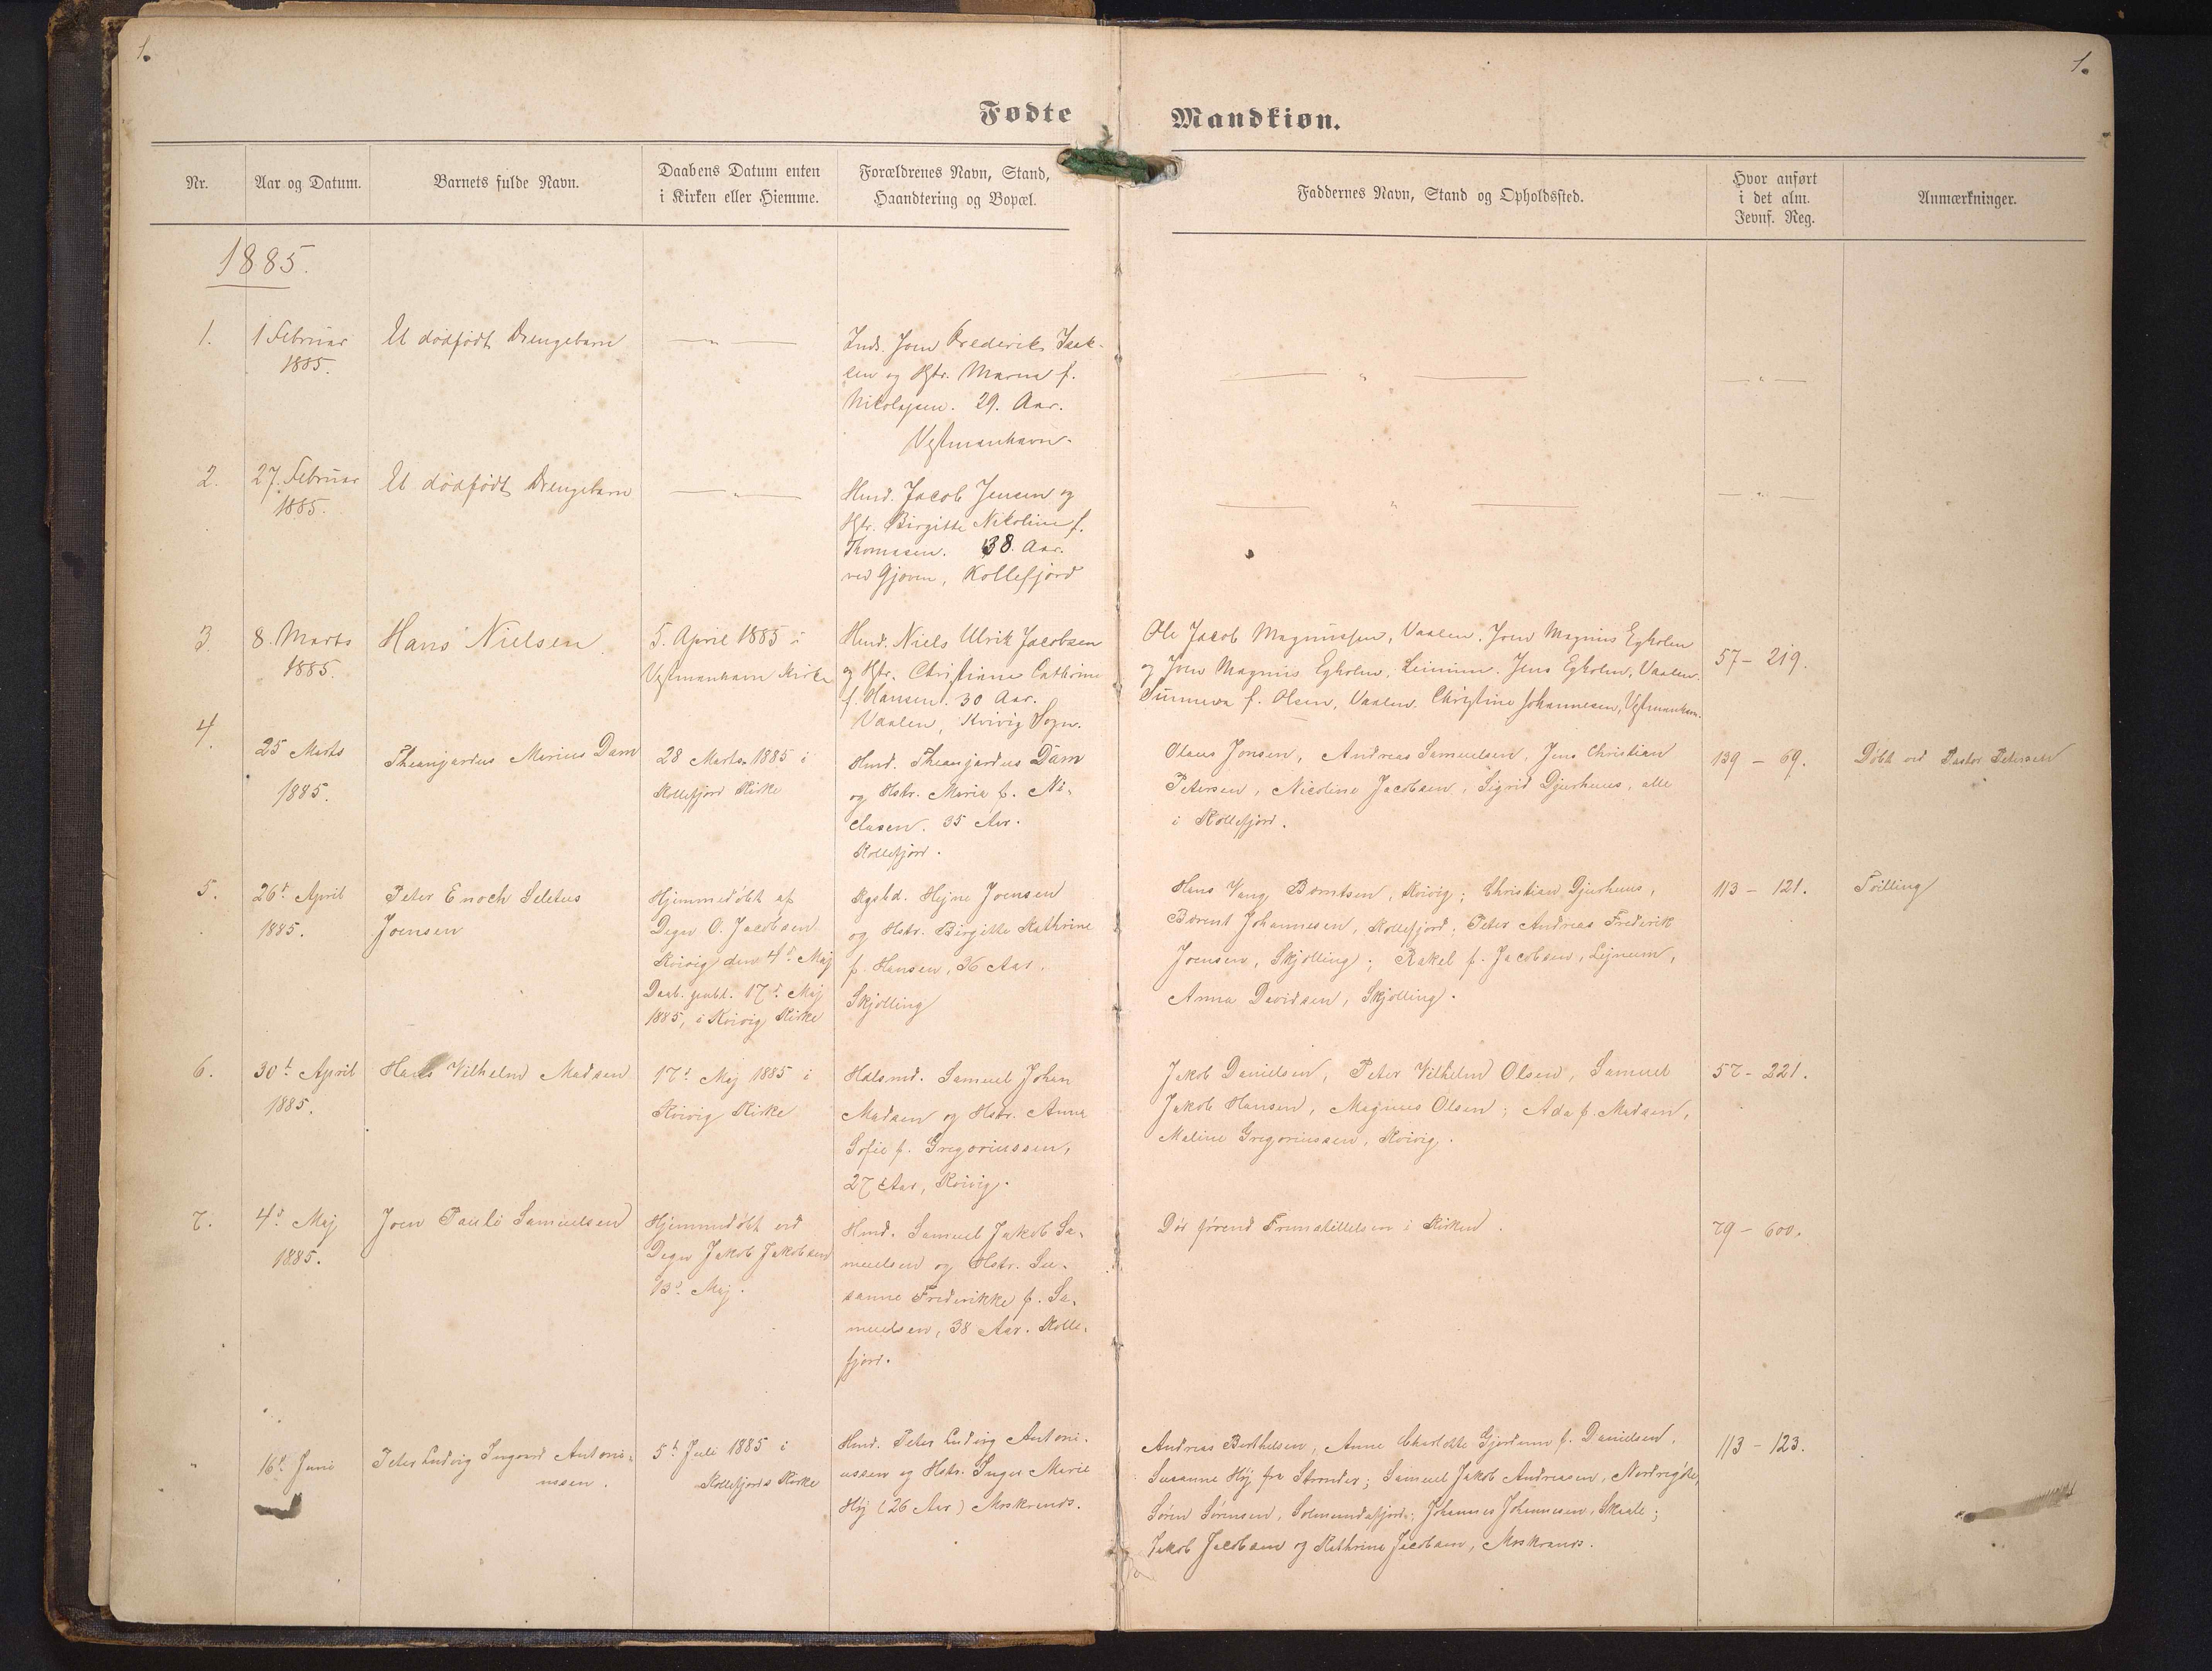 1.
1.
Fødte
Mandkiøn.
Nr.
Aar og Datum.
Barnets fulde Navn.
Daabens Datum enten
i Kirken eller Hiemme.
Forældrenes Navn, Stand,
Haandtering og Bopæl.
Faddernes Navn, Stand og Opholdssted.
Hvor anført
i det alm.
Jevnf. Reg.
Anmærkninger.
1885.
1.
1 Februar
1885.
Et dødfødt Drengebarn
— " —
Inds. Joen Frederik Isak-
sen og Hstr. Maria f.
Nikolajsen. 29. Aar.
Vestmanhavn.
— " —
— " —
2.
27. Februar
1885.
Et dødfødt Drengebarn
— " —
Hmd. Jacob Jensen og
Hstr. Birgitte Nikoline f.
Thomasen. 38. Aar.
ved Gjoven, Kollefjord
— " —
— " —
3
8. Marts
1885.
Hans Nielsen.
5. April 1885 i
Vestmanhavn Kirke
Hmd. Niels Ulrik Jacobsen
og Hstr. Christiane Cathrine
f. Hansen. 30 Aar.
Vaalen, Kvivig Sogn.
Ole Jacob Magnussen, Vaalen. Joen Magnus Egholm
og Joen Magnus Egholm, Leinum. Jens Egholm, Vaalen.
Sunneva f. Olsen, Vaalen. Christine Johannesen, Vestmanhavn.
57 - 219.
4.
25 Marts
1885.
Theangardus Marius Dam
28 Marts 1885 i
Kollefjord Kirke
Hmd. Theangardus Dam
og Hstr. Maria f. Ni-
clasen. 35 Aar.
Kollefjord.
Olaus Jonsen, Andreas Samuelsen, Jens Christian
Petersen, Nicoline Jacobsen, Sigrid Djurhuus, alle
i Kollefjord.
139 - 69.
Døbt ved Pastor Petersen
5.
26d. April
1885.
Peter Enoch Seletus
Joensen
Hjemmedøbt af
Degn O. Jacobsen
Kvivig den 4d. Maj
Daab. publ. 17d. Maj
1885, i Kvivig Kirke
Kgsbd. Hejne Joensen
og Hstr. Birgitte Kathrine
f. Hansen, 36 Aar.
Skjelling
Hans Vang Berntsen, Kvivig; Christian Djurhuus,
Berent Johannesen, Kollefjord; Peter Andreas Frederik
Joensen, Skjelling; Rakel f. Jacobsen, Lejnum,
Anna Davidsen, Skjelling.
113 - 121.
Tvilling
6.
30d. April
1885.
Hans Vilhelm Madsen
17d. Maj 1885 i
Kvivig Kirke
Hdlsmd. Samuel Johan
Madsen og Hstr. Anna
Sofie f. Gregoriussen,
27 Aar, Kvivig.
Jakob Danielsen, Peter Vilhelm Olsen, Samuel
Jakob Hansen, Magnus Olsen; Ada f. Madsen,
Maline Gregoriussen, Kvivig.
57 - 221.
7.
4d. Maj
1885.
Joen Pauli Samuelsen
Hjemmedøbt ved
Degn Jakob Jakobsen
13d. Maj.
Hmd. Samuel Jakob Sa-
muelsen og Hstr. Su-
sanne Frederikke f. Sa-
muelsen, 38 Aar. Kolle-
fjord.
Død førend Fremstillelsen i Kirken.
79 - 600.
"
16d. Juni
Peter Ludvig Ingvard Antoni-
ussen.
5d. Juli 1885 i
Kollefjords Kirke
Hmd. Peter Ludvig Antoni-
ussen og Hstr. Inger Marie
Høj (26 Aar) Morskranes.
Andreas Berthelsen, Anne Charlotte Gjordum f. Danielsen,
Susanne Høj fra Strender; Samuel Jakob Andreasen, Nordregøte,
Søren Sørensen, Solmundefjord; Johannes Johannesen, Skaale;
Jakob Jacobsen og Kathrine Jacobsen, Morskranes.
113 - 123.